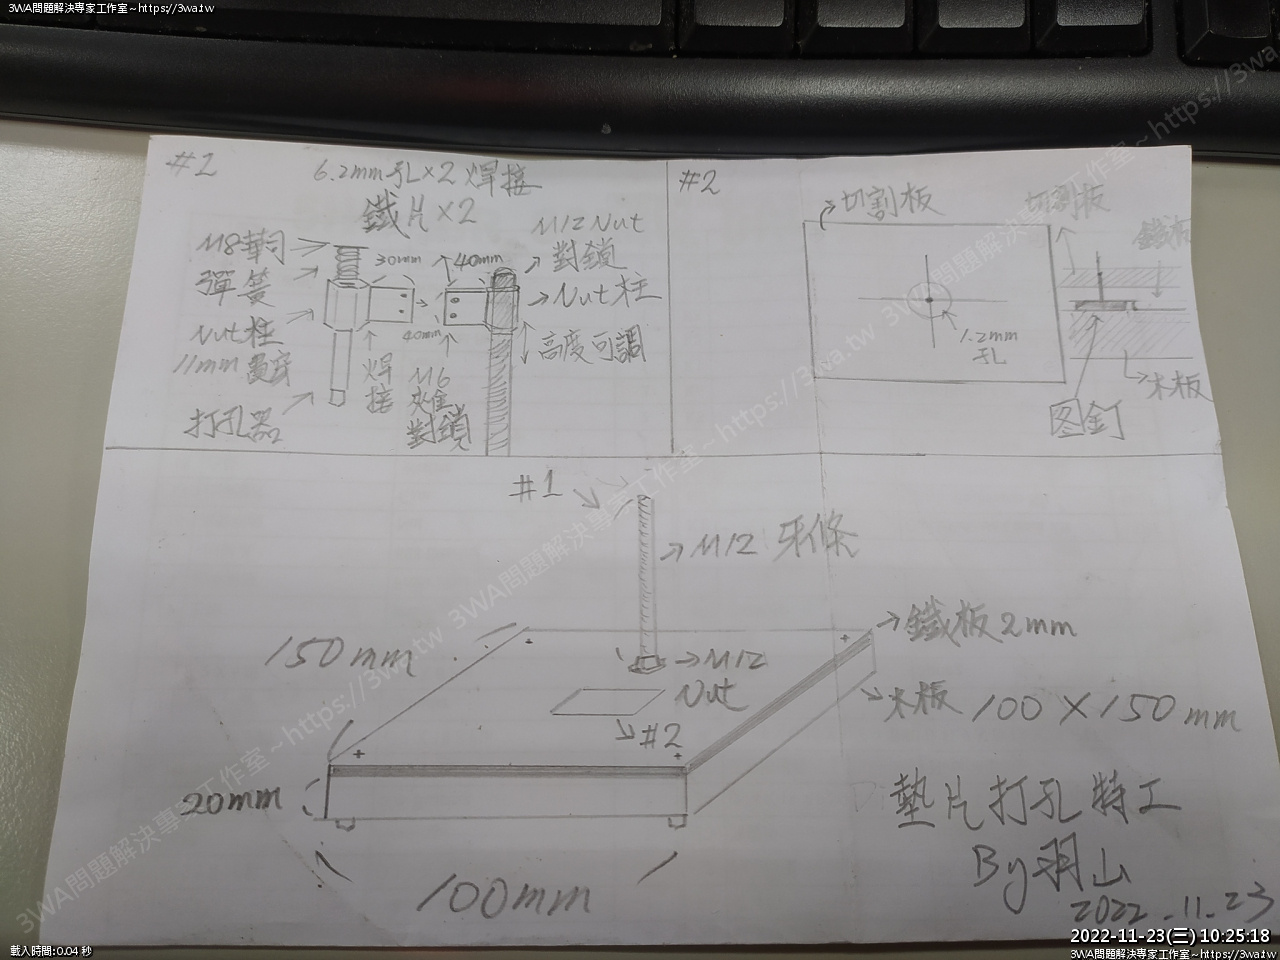 3WA問題解決專家工作室~https://3wa.tw
#1
6.2mm孔×2 焊接
鐵片×2
M8華司
彈簧
Nut柱
11mm 貫穿
打孔器
30mm
40mm
40mm
焊接
M6
對鎖
M12 Nut
對鎖
Nut柱
高度可調
#2
切割板
1.2mm
孔
切割板
鐵板
木板
图釘
#1
M12 牙條
M12
Nut
#2
150mm
20mm
100mm
鐵板2mm
木板 100×150mm
墊片打孔特工
By羽山
2022.11.23
2022-11-23(三) 10:25:18
載入時間:0.04 秒
3WA問題解決專家工作室~https://3wa.tw